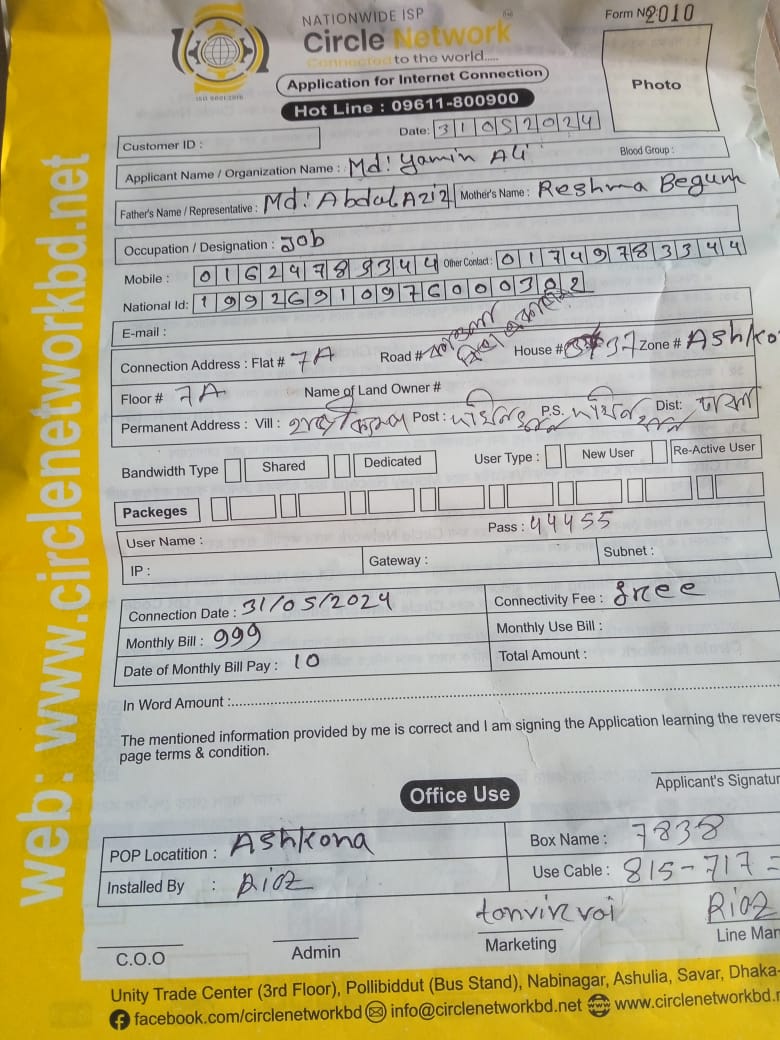 NATIONWIDE ISP
Form No 2010
Circle Network
Connected to the world.....
ISO 9001:2015
Application for Internet Connection
Photo
Hot Line : 09611-800900
Date: 31052024
Customer ID :
Applicant Name / Organization Name : Md: Yamin Ali Blood Group :
Father's Name / Representative : Md: Abdul Aziz Mother's Name : Reshma Begum
Occupation / Designation : Job
Mobile : 01624789344 Other Contact : 01749783344
National Id: 19926910976000302
E-mail :
Connection Address : Flat # 7A Road # House # 37 Zone # Ashko
Floor # 7A Name of Land Owner #
Permanent Address : Vill : Post : P.S. Dist:
Bandwidth Type Shared Dedicated User Type : New User Re-Active User
Packeges
User Name : Pass : 44455
IP : Gateway : Subnet :
Connection Date : 31/05/2024 Connectivity Fee : free
Monthly Bill : 999 Monthly Use Bill :
Date of Monthly Bill Pay : 10 Total Amount :
In Word Amount :
The mentioned information provided by me is correct and I am signing the Application learning the revers
page terms & condition.
Applicant's Signatur
Office Use
POP Locatition : Ashkona Box Name : 7838
Installed By : Rioz Use Cable : 815-717 =
tonvir voi Rioz
C.O.O Admin Marketing Line Man
Unity Trade Center (3rd Floor), Pollibiddut (Bus Stand), Nabinagar, Ashulia, Savar, Dhaka-
facebook.com/circlenetworkbd info@circlenetworkbd.net www.circlenetworkbd.n
web: www.circlenetworkbd.net